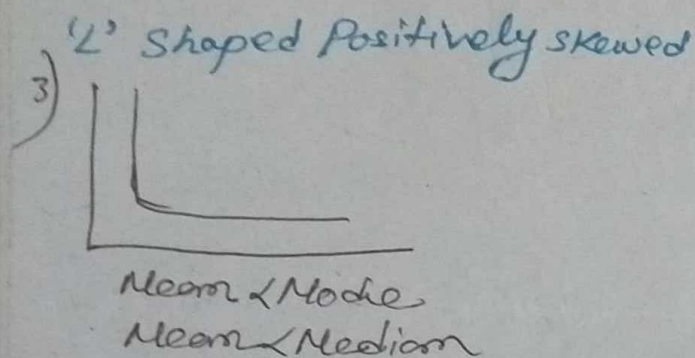 'L' Shaped Positively skewed
3)
Mean < Mode
Mean < Median